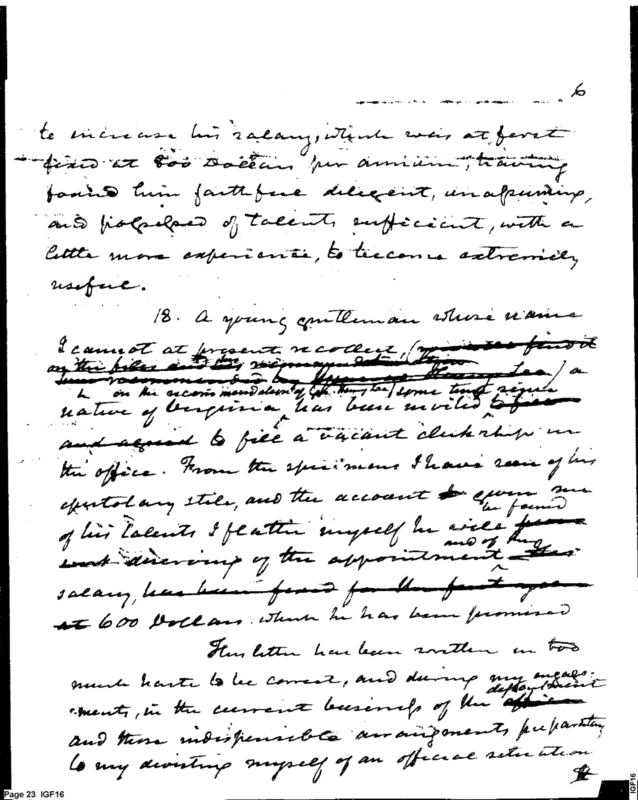 6
to increase his salary, which was at first
fixed at 500 Dollars per annum, having
found him faithful diligent, unassuming,
and possessed of talents sufficient, with a
little more experience, to become extremely
useful.
18. A young gentleman whose name
I cannot at present recollect, (you will find it
on the files and his
was recommended by
on the recommendation of Genl. Henry Lee / some time since
native of Virginia has been invited to fill
and agreed to fill a vacant clerkship in
the office. From the specimens I have seen of his
epistolary stile, and the account given me
be found
of his talents I flatter myself he will
deserving of the appointment
and of the
salary, has been fixed for the first year
at 600 Dollars which he has been promised
This letter has been written in too
much haste to be correct, and during my engage-
department
ments, in the current business of the office
and those indispensible arrangments preparatory
to my divesting myself of an official situation
Page 23 IGF16
IGF16